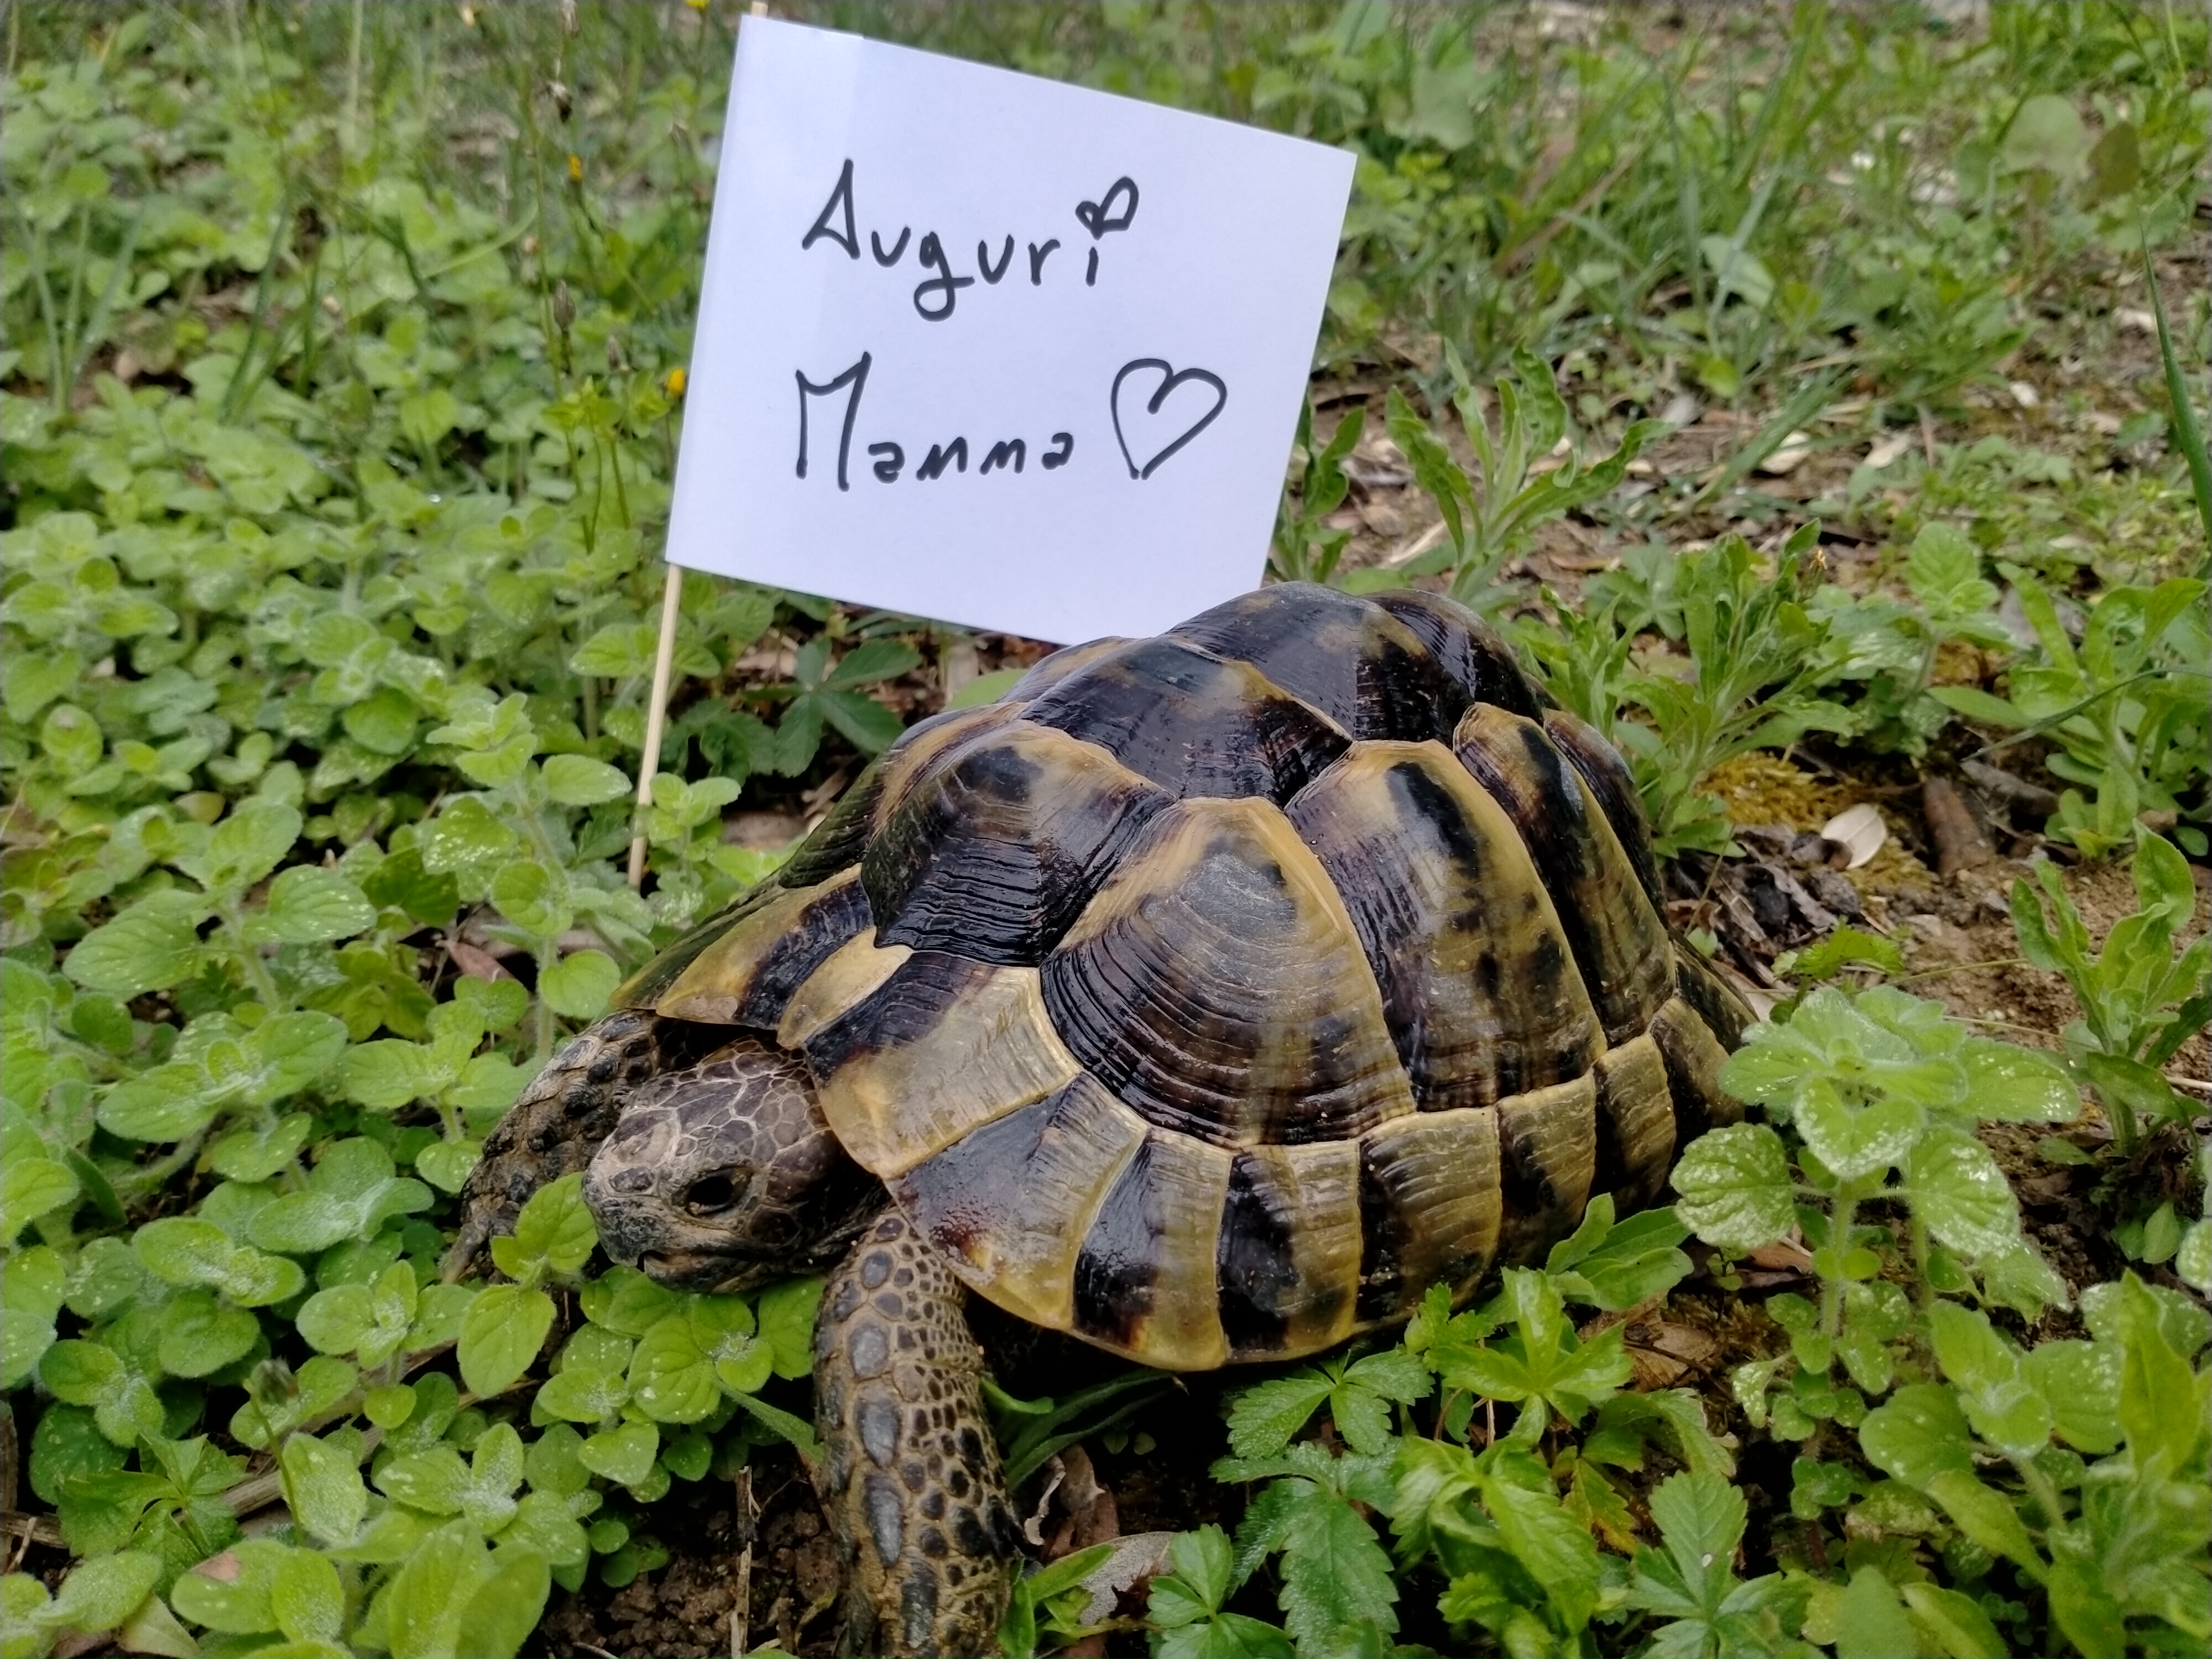 Auguri
Mamma ♡